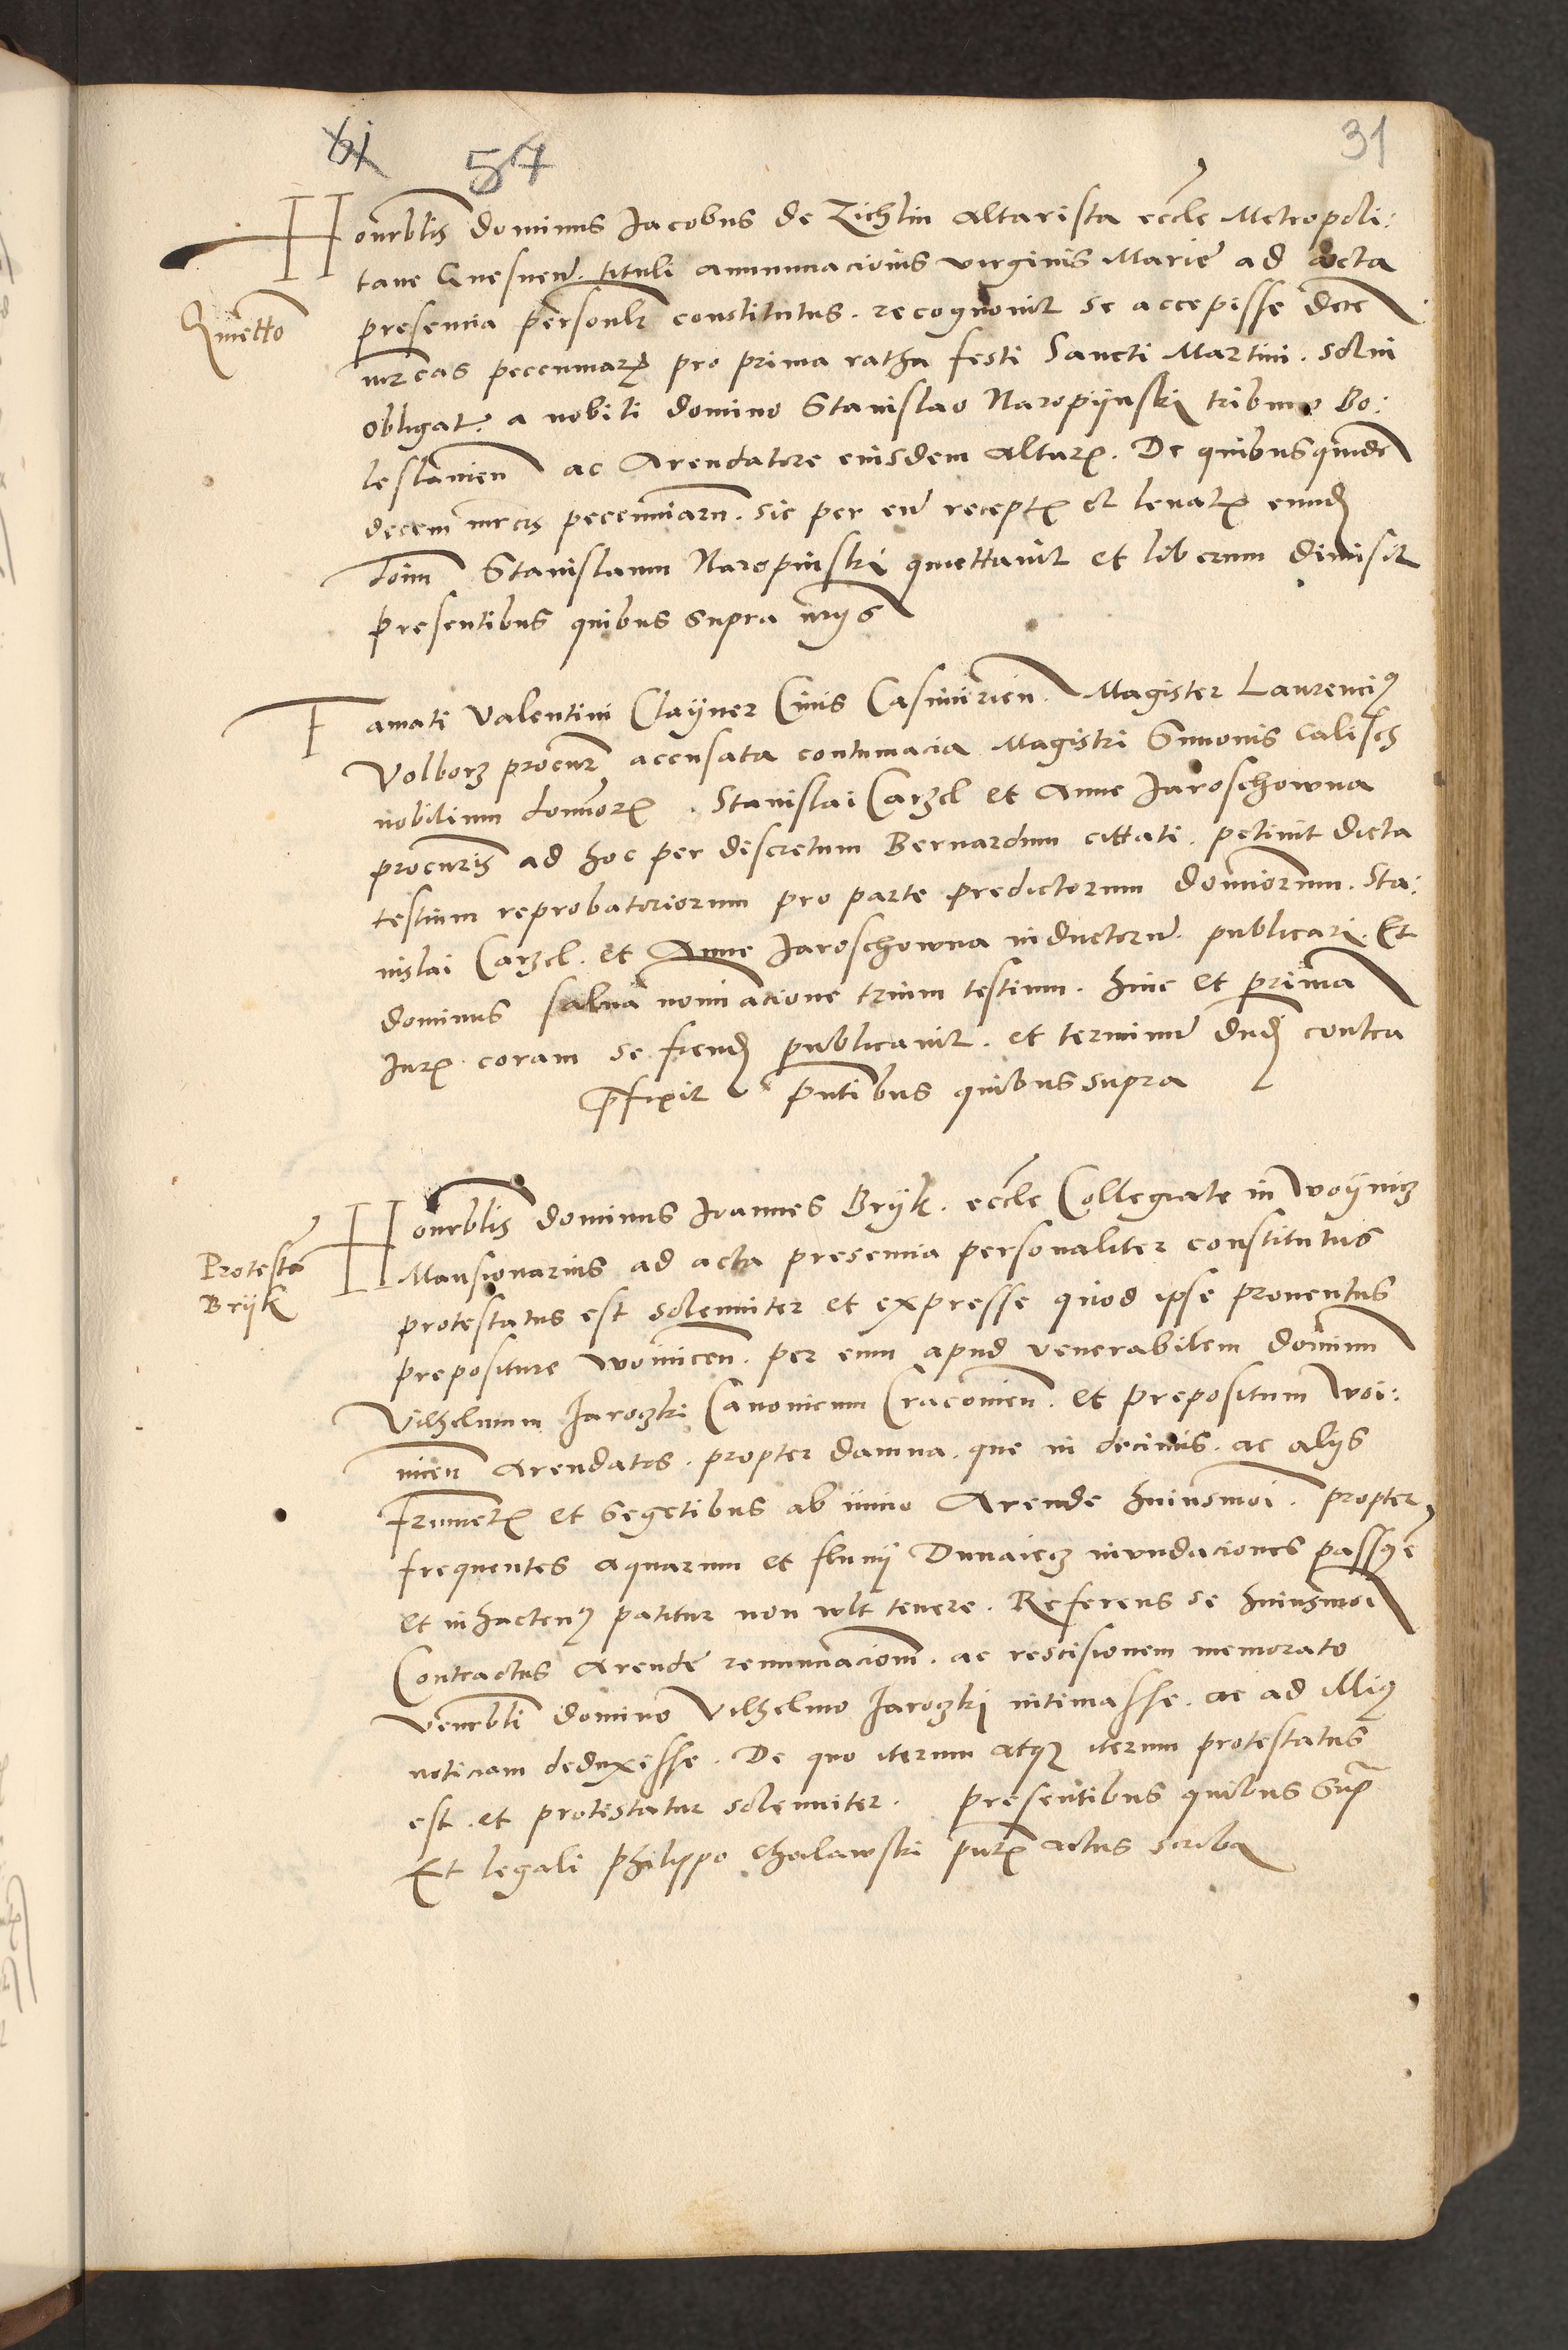 61 57 31
Honrblis dominus Jacobus de Zichlin altarista eccle Metropoli:
tane Gnesnen. tituli annunnacionis virginis Marie ad acta
Quietto
presencia personlr constitutus. recognovit se accepisse dece
mrcas peccuniarz pro prima ratha festi Sancti Martini. solvi
obligat. a nobili domino Stanislao Naropijnski tribuno Bo:
leslavien ac Arendatore eiusdem altarz. De quibusquidem
decem mrcis peccuniarum. sic per eum receptz et levatz eundz
doim Stanislaum Naropinski quiettavit et liberum dimisit
presentibus quibus supra
Famati Valentini Claijner Civis Casimirien. Magister Laurencius
Volborz procur accusata contumacia Magistri Simonis Calisch
nobilium domiorz. Stanislai Carzel et Anne Jaroschowna
procuris ad hoc per discretum Bernardum cittati. petivit dicta
testium reprobatoriorum pro parte predictorum domiorum. Sta:
nislai Carzel. et Anne Jaroschowna inductorum. publicari. Et
dominus salva nominacione trium testium. hinc et prima
Jurz coram se fiendz publicavit. et terminum dndz contra
pfixit pntibus quibus supra
Honrblis dominus Joannes Brijk. eccle Collegiate in Woijnicz
Protesta
Brijk
Mansionarius ad acta presencia personaliter constitutus
protestatus est solenniter et expresse quod ipse proventus
prepositure Woinicen. per eum apud venerabilem dominum
Vilhelmum Jaroczki Canonicum Cracovien. et prepositum Woi:
nicen Arendatos. propter damna. que in decimis. ac alijs
frumentz et segetibus ab inicio Arende huiusmoi. propter
frequentes aquarum et fluvij Dunaiecz inundaciones passus e
et in hactenus patitur non vlt tenere. Referens se huiusmoi
Contractus Arende renunciacionem. ac rescisionem memorato
Venerbli domino Vilhelmo Jaroczki intimasse. ac ad illius
noticiam deduxisse. De quo iterum atque iterum protestatus
est. et protestatur solenniter. presentibus quibus Sup
Et legali Philippo Chodawski pntz actus scriba